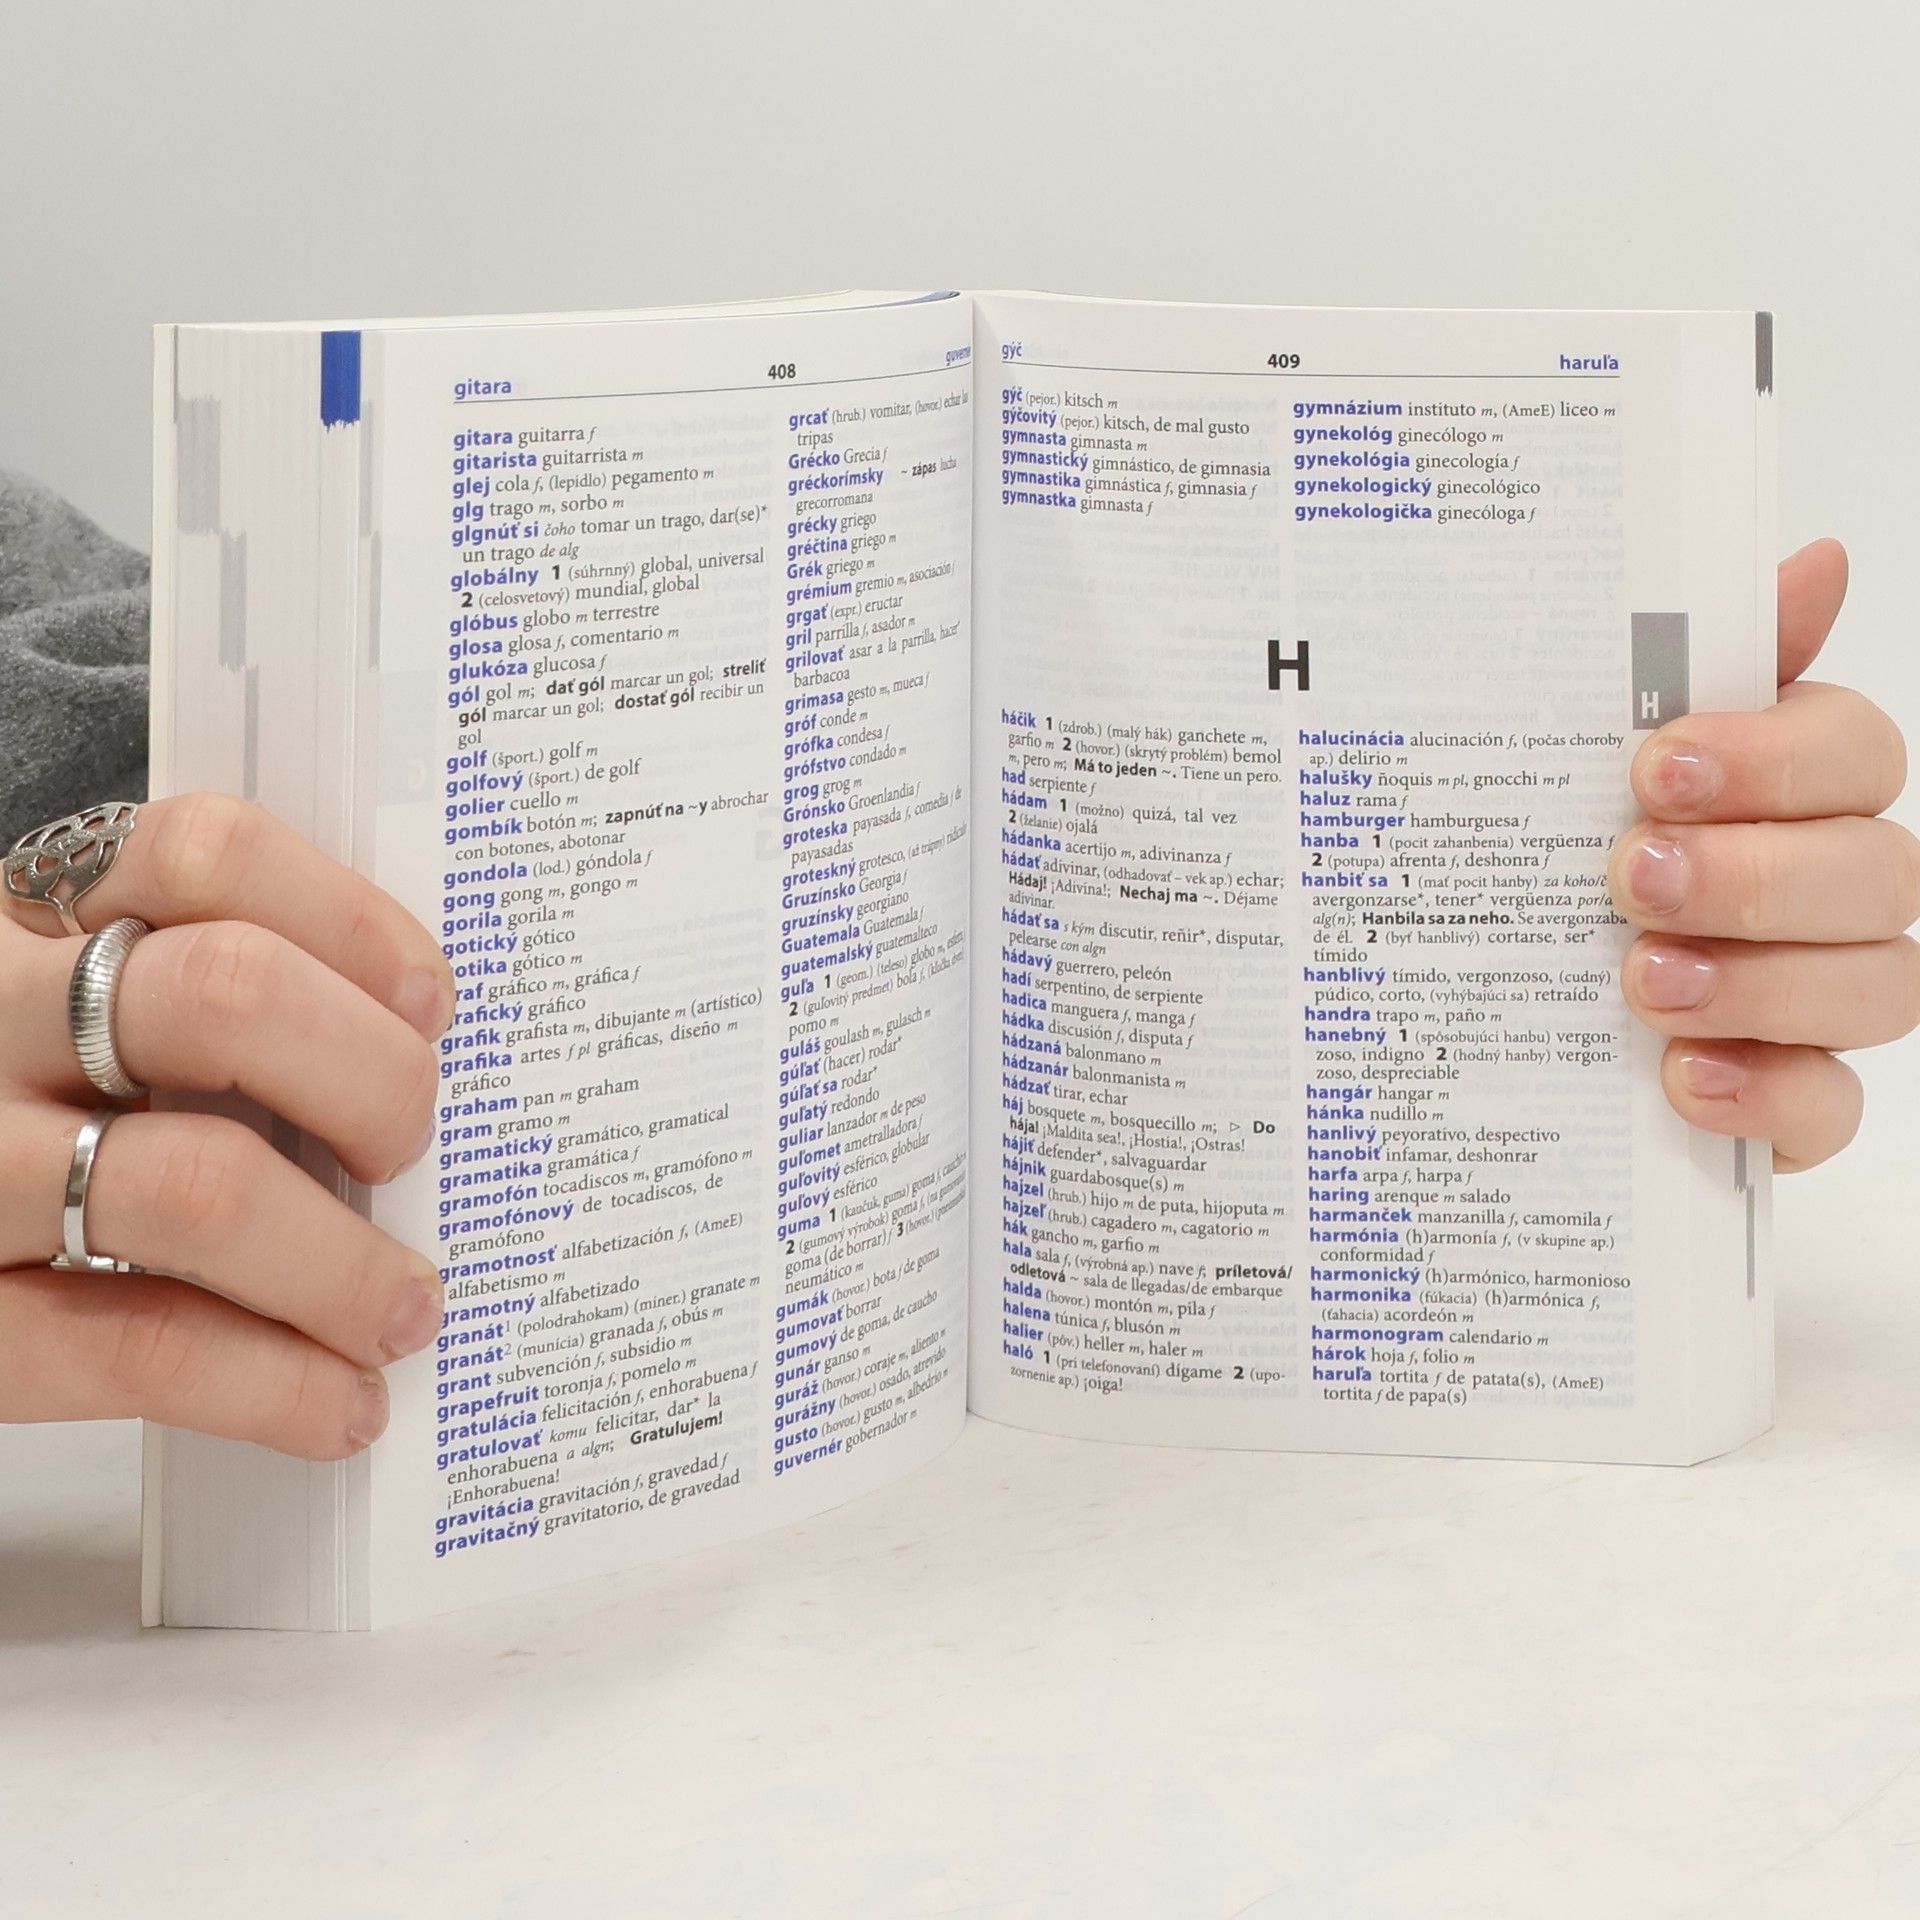 gitara
408
gitara guitarra f
gitarista guitarrista m
glej cola f, (lepidlo) pegamento m
glg trago m, sorbo m
glgnúť si čoho tomar un trago, dar(se)*
un trago de alg
globálny 1 (súhrnný) global, universal
2 (celosvetový) mundial, global
glóbus globo m terrestre
glosa glosa f, comentario m
glukóza glucosa f
gól gol m; dať gól marcar un gol; streliť
gól marcar un gol; dostať gól recibir un
gol
golf (šport.) golf m
golfový (šport.) de golf
golier cuello m
gombík botón m; zapnúť na ~y abrochar
con botones, abotonar
gondola (lod.) góndola f
gong gong m, gongo m
gorila gorila m
gotický gótico
otika gótico m
raf gráfico m, gráfica f
rafický gráfico
grafik grafista m, dibujante m (artístico)
grafika artes f pl gráficas, diseño m
gráfico
graham pan m graham
gram gramo m
gramatický gramático, gramatical
gramatika gramática f
gramofón tocadiscos m, gramófono m
gramofónový de tocadiscos, de
gramófono
gramotnosť alfabetización f, (AmeE)
alfabetismo m
gramotný alfabetizado
granát¹ (polodrahokam) (miner.) granate m
granát² (munícia) granada f, obús m
grant subvención f, subsidio m
grapefruit toronja f, pomelo m
gratulácia felicitación f, enhorabuena f
gratulovať komu felicitar, dar* la
enhorabuena a algn; Gratulujem!
¡Enhorabuena!
gravitácia gravitación f, gravedad f
gravitačný gravitatorio, de gravedad
grcať (hrub.) vomitar, (hovor.) echar las
tripas
Grécko Grecia f
gréckorímsky ~ zápas lucha
grecorromana
grécky griego
gréčtina griego m
Grék griego m
grémium gremio m, asociación f
grgať (expr.) eructar
gril parrilla f, asador m
grilovať asar a la parrilla, hacer*
barbacoa
grimasa gesto m, mueca f
gróf conde m
grófka condesa f
grófstvo condado m
grog grog m
Grónsko Groenlandia f
groteska payasada f, comedia f de
payasadas
groteskný grotesco, (až trápny) ridículo
Gruzínsko Georgia f
gruzínsky georgiano
Guatemala Guatemala f
guatemalský guatemalteco
guľa 1 (geom.) (teleso) globo m, esfera f
2 (guľovitý predmet) bola f, (kľučka dverí)
pomo m
guláš goulash m, gulasch m
gúľať (hacer) rodar*
gúľať sa rodar*
guľatý redondo
guliar lanzador m de peso
guľomet ametralladora f
guľovitý esférico, globular
guľový esférico
guma 1 (kaučuk, guma) goma f, caucho m
2 (gumový výrobok) goma f, (na gumovanie)
goma (de borrar) f 3 (hovor.) (pneumatika)
neumático m
gumák (hovor.) bota f de goma
gumovať borrar
gumový de goma, de caucho
gunár ganso m
guráž (hovor.) coraje m, aliento m
gurážny (hovor.) osado, atrevido
gusto (hovor.) gusto m, albedrío m
guvernér gobernador m
gýč
409
haruľa
gýč (pejor.) kitsch m
gýčovitý (pejor.) kitsch, de mal gusto
gymnasta gimnasta m
gymnastický gimnástico, de gimnasia
gymnastika gimnástica f, gimnasia f
gymnastka gimnasta f
gymnázium instituto m, (AmeE) liceo m
gynekológ ginecólogo m
gynekológia ginecología f
gynekologický ginecológico
gynekologička ginecóloga f
H
H
háčik 1 (zdrob.) (malý hák) ganchete m,
garfio m 2 (hovor.) (skrytý problém) bemol
m, pero m; Má to jeden ~. Tiene un pero.
had serpiente f
hádam 1 (možno) quizá, tal vez
2 (želanie) ojalá
hádanka acertijo m, adivinanza f
hádať adivinar, (odhadovať – vek ap.) echar;
Hádaj! ¡Adivina!; Nechaj ma ~. Déjame
adivinar.
hádať sa s kým discutir, reñir*, disputar,
pelearse con algn
hádavý guerrero, peleón
hadí serpentino, de serpiente
hadica manguera f, manga f
hádka discusión f, disputa f
hádzaná balonmano m
hádzanár balonmanista m
hádzať tirar, echar
háj bosquete m, bosquecillo m; ▷ Do
hája! ¡Maldita sea!, ¡Hostia!, ¡Ostras!
hájiť defender*, salvaguardar
hájnik guardabosque(s) m
hajzel (hrub.) hijo m de puta, hijoputa m
hajzeľ (hrub.) cagadero m, cagatorio m
hák gancho m, garfio m
hala sala f, (výrobná ap.) nave f; príletová/
odletová ~ sala de llegadas/de embarque
halda (hovor.) montón m, pila f
halena túnica f, blusón m
halier (pôv.) heller m, haler m
haló 1 (pri telefonovaní) dígame 2 (upo-
zornenie ap.) ¡oiga!
halucinácia alucinación f, (počas choroby
ap.) delirio m
halušky ñoquis m pl, gnocchi m pl
haluz rama f
hamburger hamburguesa f
hanba 1 (pocit zahanbenia) vergüenza f
2 (potupa) afrenta f, deshonra f
hanbiť sa 1 (mať pocit hanby) za koho/č
avergonzarse*, tener* vergüenza por/a
alg(n); Hanbila sa za neho. Se avergonzaba
de él. 2 (byť hanblivý) cortarse, ser*
tímido
hanblivý tímido, vergonzoso, (cudný)
púdico, corto, (vyhýbajúci sa) retraído
handra trapo m, paño m
hanebný 1 (spôsobujúci hanbu) vergon-
zoso, indigno 2 (hodný hanby) vergon-
zoso, despreciable
hangár hangar m
hánka nudillo m
hanlivý peyorativo, despectivo
hanobiť infamar, deshonrar
harfa arpa f, harpa f
haring arenque m salado
harmanček manzanilla f, camomila f
harmónia (h)armonía f, (v skupine ap.)
conformidad f
harmonický (h)armónico, harmonioso
harmonika (fúkacia) (h)armónica f,
(ťahacia) acordeón m
harmonogram calendario m
hárok hoja f, folio m
haruľa tortita f de patata(s), (AmeE)
tortita f de papa(s)